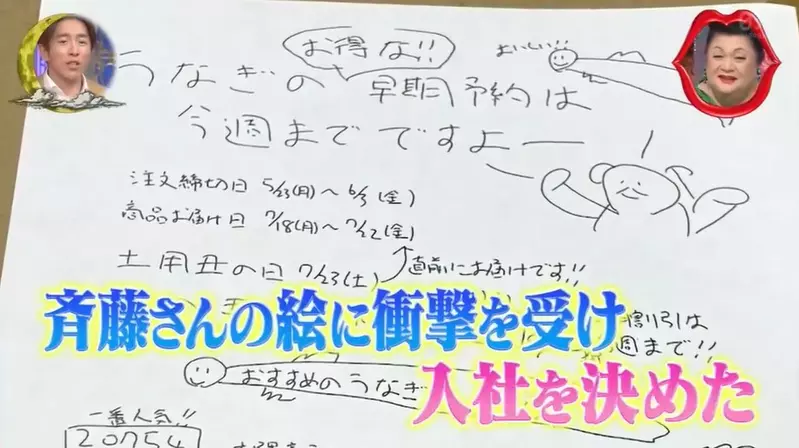 お得な!!
おいしい!!
うなぎの早期予約は
今週までですよー
注文締切日 5/23(月)〜6/3(金)
商品お届け日 7/18(月)〜7/22(金)
土用丑の日 7/23(土)
直前にお届けです!!
割引は
週まで!!
おすすめのうなぎ
一番人気!!
20754
斉藤さんの絵に衝撃を受け
入社を決めた